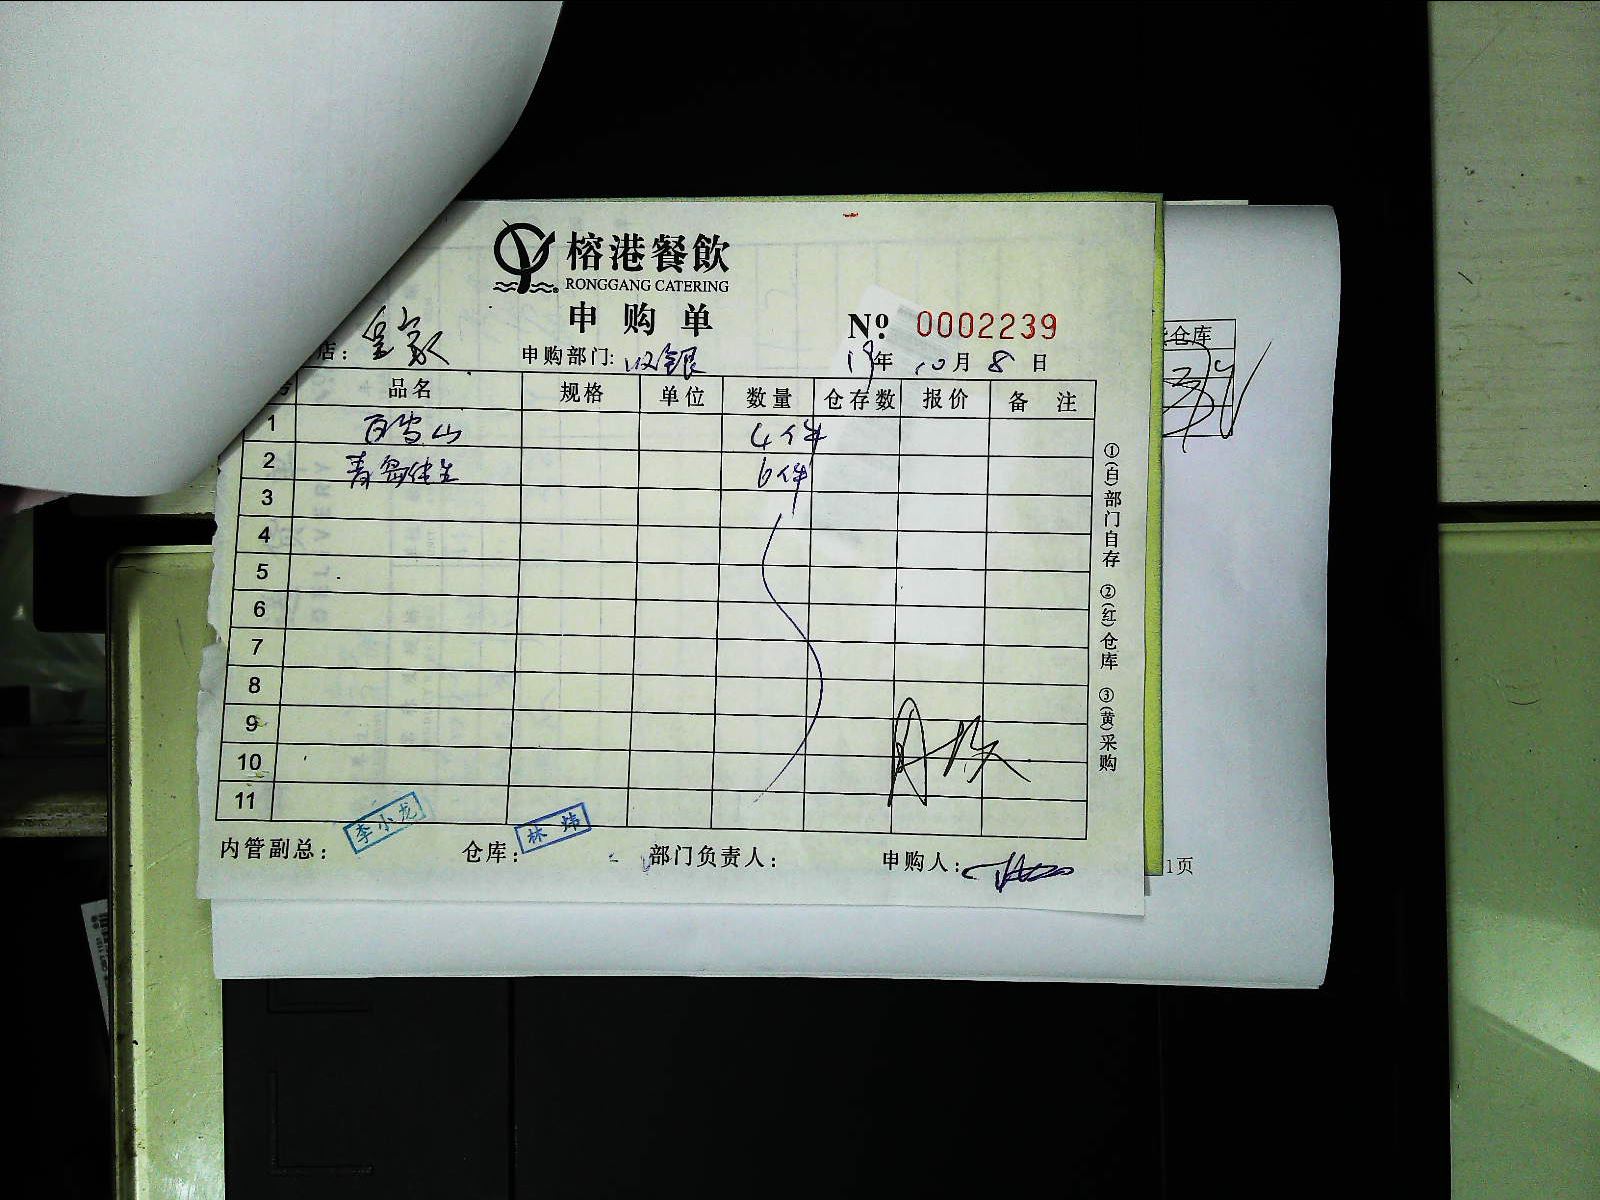 榕港餐飲
RONGGANG CATERING
申购单
№ 0002239
店: 皇家 申购部门: 收银 19年 10月 8日
号 品名 规格 单位 数量 仓存数 报价 备注
1 百雪山 4件
2 青岛纯生 6件
3
4
5
6
7
8
9
10
11
①(白)部门自存 ②(红)仓库 ③(黄)采购
内管副总: 李小龙 仓库: 林炜 部门负责人: 申购人:
仓库
1页